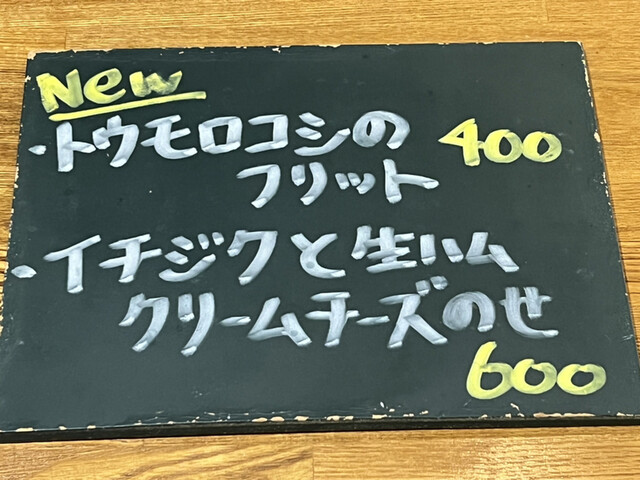 New
・トウモロコシの 400
フリット
・イチジクと生ハム
クリームチーズのせ
600